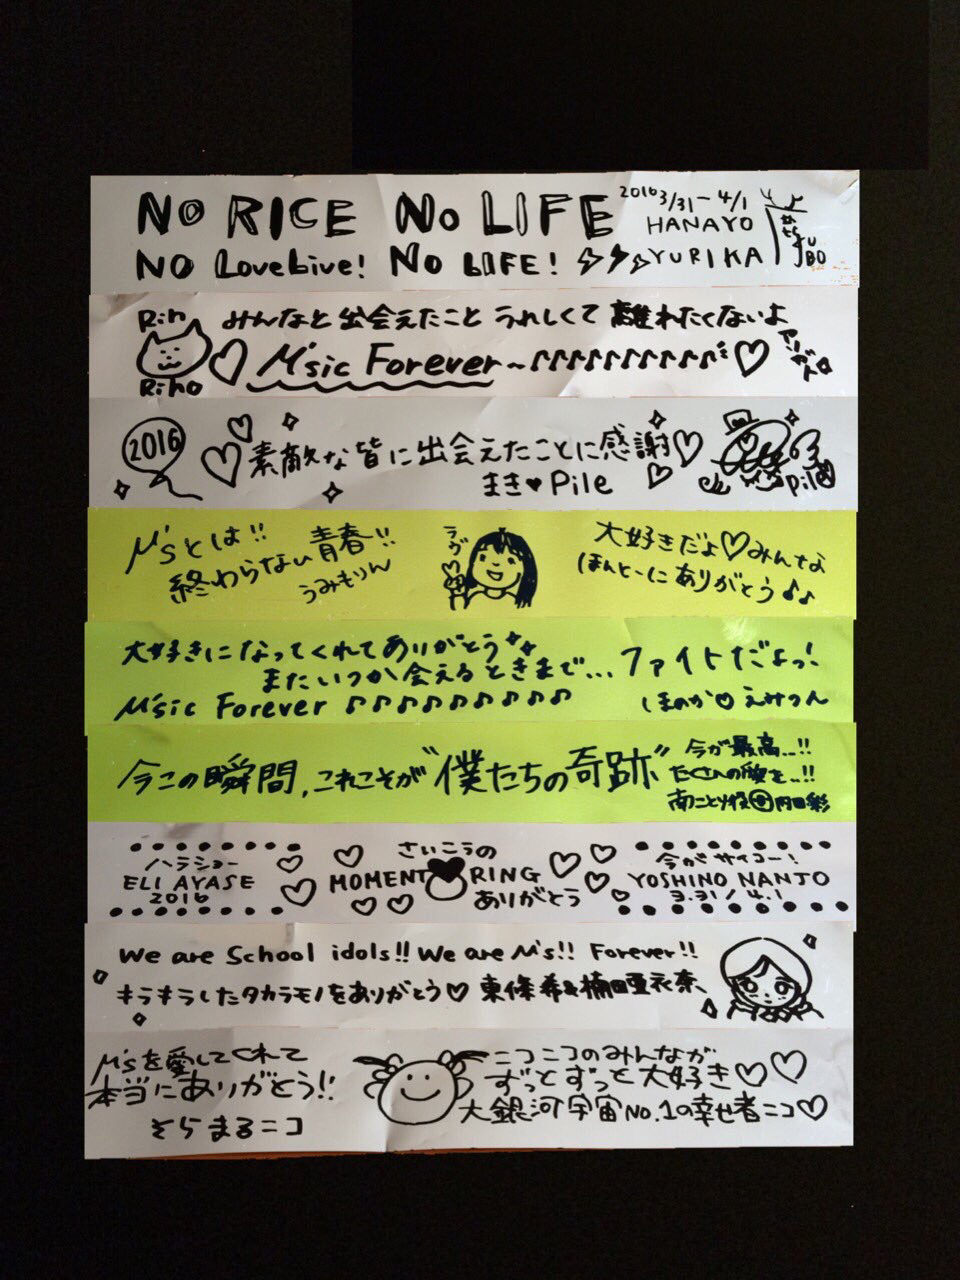 NO RICE NO LIFE
NO LoveLive! NO LIFE!
2016 3/31～4/1
HANAYO
YURIKA
KUBO
Rin
Riho
みんなと出会えたこと うれしくて 離れたくないよ
μ'sic Forever～♪♪♪♪♪♪♪♪♪
2016
素敵な皆に出会えたことに感謝
まき♥Pile
Pile
μ'sとは!!
終わらない青春!!
うみもりん
ラヴ
大好きだよ♡みんな
ほんとーにありがとう♪♪
大好きになってくれてありがとう
またいつか会えるときまで… ファイトだよっ!
μ'sic Forever ♪♪♪♪♪♪♪♪♪
ほのか♡えみつん
今この瞬間,これこそが"僕たちの奇跡"
今が最高…!!
たくさんの愛を…!!
南ことり役 内田彩
ハラショー
ELI AYASE
2016
さいこうの
MOMENT RING
ありがとう
今がサイコー!
YOSHINO NANJO
3.31/4.1
We are School idols!! We are μ's!! Forever!!
キラキラしたタカラモノをありがとう♡ 東條希&楠田亜衣奈、
μ'sを愛してくれて
本当にありがとう!!
そらまるニコ
ニコニコのみんなが
ずっとずっと大好き♡♡
大銀河宇宙No.1の幸せ者ニコ♡